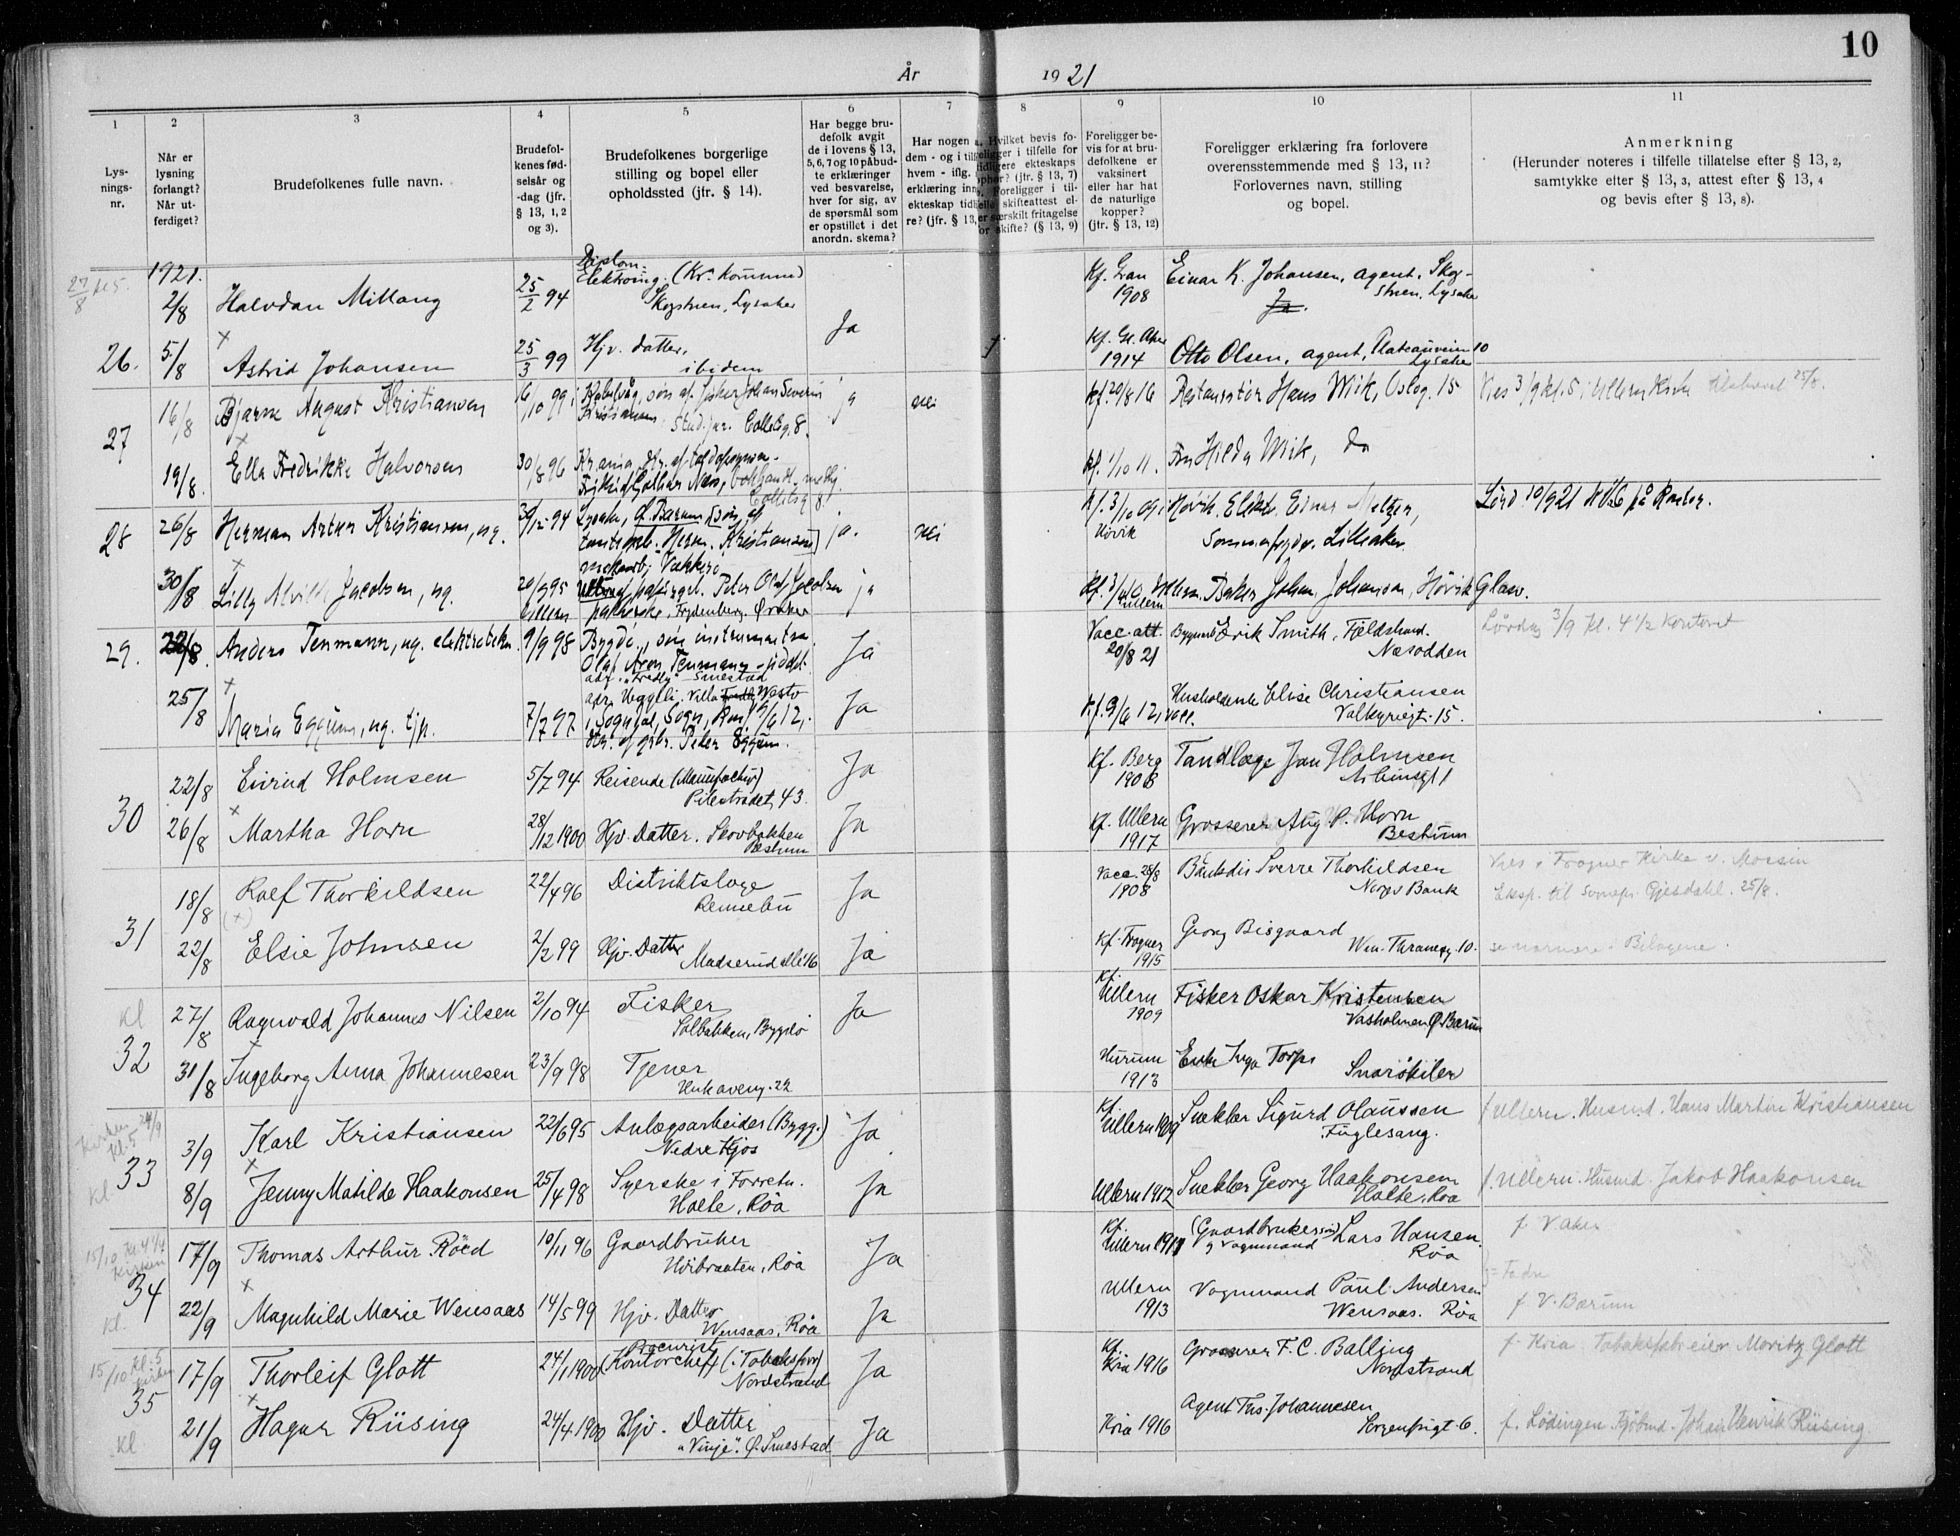 10
År 1921
1 2 3 4 5 6 7 8 9 10 11
Lys-
nings-
nr.
Når er
lysning
forlangt?
Når ut-
ferdiget?
Brudefolkenes fulle navn.
Brudefol-
kenes fød-
selsår og
-dag (jfr.
§ 13, 1, 2
og 3).
Brudefolkenes borgerlige
stilling og bopel eller
opholdssted (jfr. § 14).
Har begge bru-
defolk avgit
de i lovens § 13,
5, 6, 7 og 10 påbud-
te erklæringer
ved besvarelse,
hver for sig, av
de spørsmål som
er opstillet i det
anordn. skema?
Har nogen a
dem - og i til
hvem - iflg.
erklæring inn
ekteskap tid
re? (jfr. § 13,
Hvilket bevis fo-
religger i tilfelle for
tidligere ekteskaps
ophør? (jfr. § 13, 7)
Foreligger i til-
felle skifteattest el-
ler særskilt fritagelse
for skifte? (§ 13, 9)
Foreligger be-
vis for at bru-
defolkene er
vaksinert
eller har hat
de naturlige
kopper?
(jfr. § 13, 12)
Foreligger erklæring fra forlovere
overensstemmende med § 13, 11?
Forlovernes navn, stilling
og bopel.
Anmerkning
(Herunder noteres i tilfelle tillatelse efter § 13, 2,
samtykke efter § 13, 3, attest efter § 13, 4
og bevis efter § 13, 8).
27/8 kl 5. 1921. 2/8 Halvdan Millang 25/2 94 Diplom. Elektroing. (Kr. Kommune) Kf. Gran 1908 Einar K. Johansen, agent. Skog-
Skogstuen, Lysaker Ja. stuen, Lysaker
26. 5/8 Astrid Johansen 25/3 99 Hjv. datter, ibidem Ja Kf. Gl. Aker 1914 Otto Olsen, agent, Plateauveien 10 Lysaker
27 16/8 Bjarne August Kristiansen 16/10 99 i Kabelvåg, søn af fisker Johan Severin ja nei Kf. 20/8 16 Restauratør Hans Wik, Oslog. 15 Vies 3/9 kl. 5 i Ullern Kirke
Kristiansen, Stud. jur. Colletsg. 8.
19/8. Ella Fredrikke Halvorsen 30/8 96 Kf. 1/10 11. Fru Hilda Wik, do
28 26/8 Herman Artur Kristiansen, ug. 30/12 94 Lysaker, Ø. Bærum, søn af ja. nei Kf. 3/10 09 i Høvik. Elektr. Einar Metzer, Lørd 10/9 21 Kl 6 på Kontor.
Herm. Kristiansen Høvik Lilleaker
30/8 Lilly Alvilde Jacobsen, ug. 20/9 95 Ullern Peter Olaf Jacobsen ja Kf. Ullern. Baker Johan Johansen, Høvik Glasv.
Frydenberg. Øraker
29. 22/8. Anders Tenmann, ug. elektrotekn. 9/9 98 Bygdø, søn instrumentm. Ja Vacc. att. 20/8 21 Erik Smith, Fjeldstrand. Lørdag 3/9 kl. 4 1/2 Kontoret
Olaf Aron Tenmann Næsodden
adr. "Fredly" Smestad
25/8 Maria Eggum, ug. tjp. 7/7 97 i Sogndal, Sogn, Ja Kf. 9/6 12, vacc. Husholderske Elise Christiansen
dtr. af grbr. Peter Eggum. Valkyriegt. 15.
30 22/8 Eivind Holmsen 5/7 94 Reisende (Manufactur) Ja Kf. Berg 1908 Tandlæge Jan Holmsen
Pilestrædet 43.
26/8 Martha Horn 28/12 1900 Hjv. Datter. Skovbakken Ja Kf. Ullern 1917 Grosserer Aug. P. Horn
Bestum Bestum
31 18/8 Rolf Thorkildsen 22/4 96 Distriktslæge Ja Vacc. 28/8 1908 Bankdir. Sverre Thorkildsen Vies i Frogner Kirke v. Mossin
Rennebu Norges Bank Eksp. til Sognepr. Gjesdahl. 25/8.
22/8 Elsie Johnsen 2/2 99 Hjv. Datter Ja Kf. Frogner 1915 Georg Bisgaard se nærmere i Bilagene.
Madserud allé 16 Wm. Thranesg. 10.
kl 32 27/8 Ragnvald Johannes Nilsen 2/10 94 Fisker Ja Kf. Ullern 1909 Fisker Oskar Kristensen
Solbakken, Bygdø Vasholmen Ø. Bærum
31/8 Ingeborg Anna Johannesen 23/9 98 Tjener Hurum 1913 Enke Inga Torps Snarøkilen
Huk aveny. 22
Kirken 24/9 kl. 5 33 3/9 Karl Kristiansen 22/6 95 Anlægsarbeider (Bygg.) Ja Kf. Ullern 1909 Snekker Sigurd Olaussen f. Ullern. Husmd. Hans Martin Kristiansen
Nedre Kjos Fuglesang.
kl 8/9 Jenny Matilde Haakonsen 25/4 98 Syerske i Forretn. Ja Ullern 1912 Snekker Georg Haakonsen f. Ullern. Husmd. Jakob Haakonsen
Holte, Røa Holte, Røa
15/10 kl 4 1/4 Kirken 34 17/9 Thomas Arthur Röed 10/11 96 Gaardbruker Ja Kf. Ullern 1911 (Gaardbruker og vognmand) Lars Hansen. f. V. Aker
Høibraaten, Røa Røa
kl. 22/9 Magnhild Marie Wensaas 14/5 99 Hjv. Datter Ja Ullern 1913 Vognmand Paul Andersen f. V. Bærum
Wensaas, Røa Wensaas. Røa
15/10 kl. 5 Kirken 35 17/9 Thorleif Glott 24/1 1900 Procurist (Kontorchef) (Tobaksforr) Ja Kf. Kria 1916 Grosserer F. C. Balling f. Kria Tobaksfabreier Moritz Glott
Nordstrand Nordstrand
kl 21/9 Hagar Riising 24/4 1900 Hjv. Datter Ja Kria 1916 Agent Ths. Johannesen f. Lödingen. Kjöbmd. Johan Henrik Riising
"Vinje". Ø. Smestad Sorgenfrigt. 6.